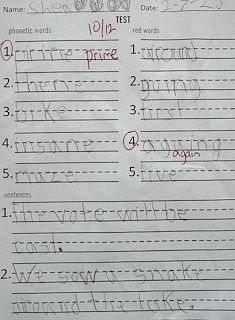 Name: Date: 2-7-23
TEST
10/12
phonetic words red words
1. prime 1. around
2. theme 2. going
3. bike 3. first
4. insane 4.
again
5. maze 5. live
sentences
1. the vote will be
cast.
2. We saw a snake
around the lake.